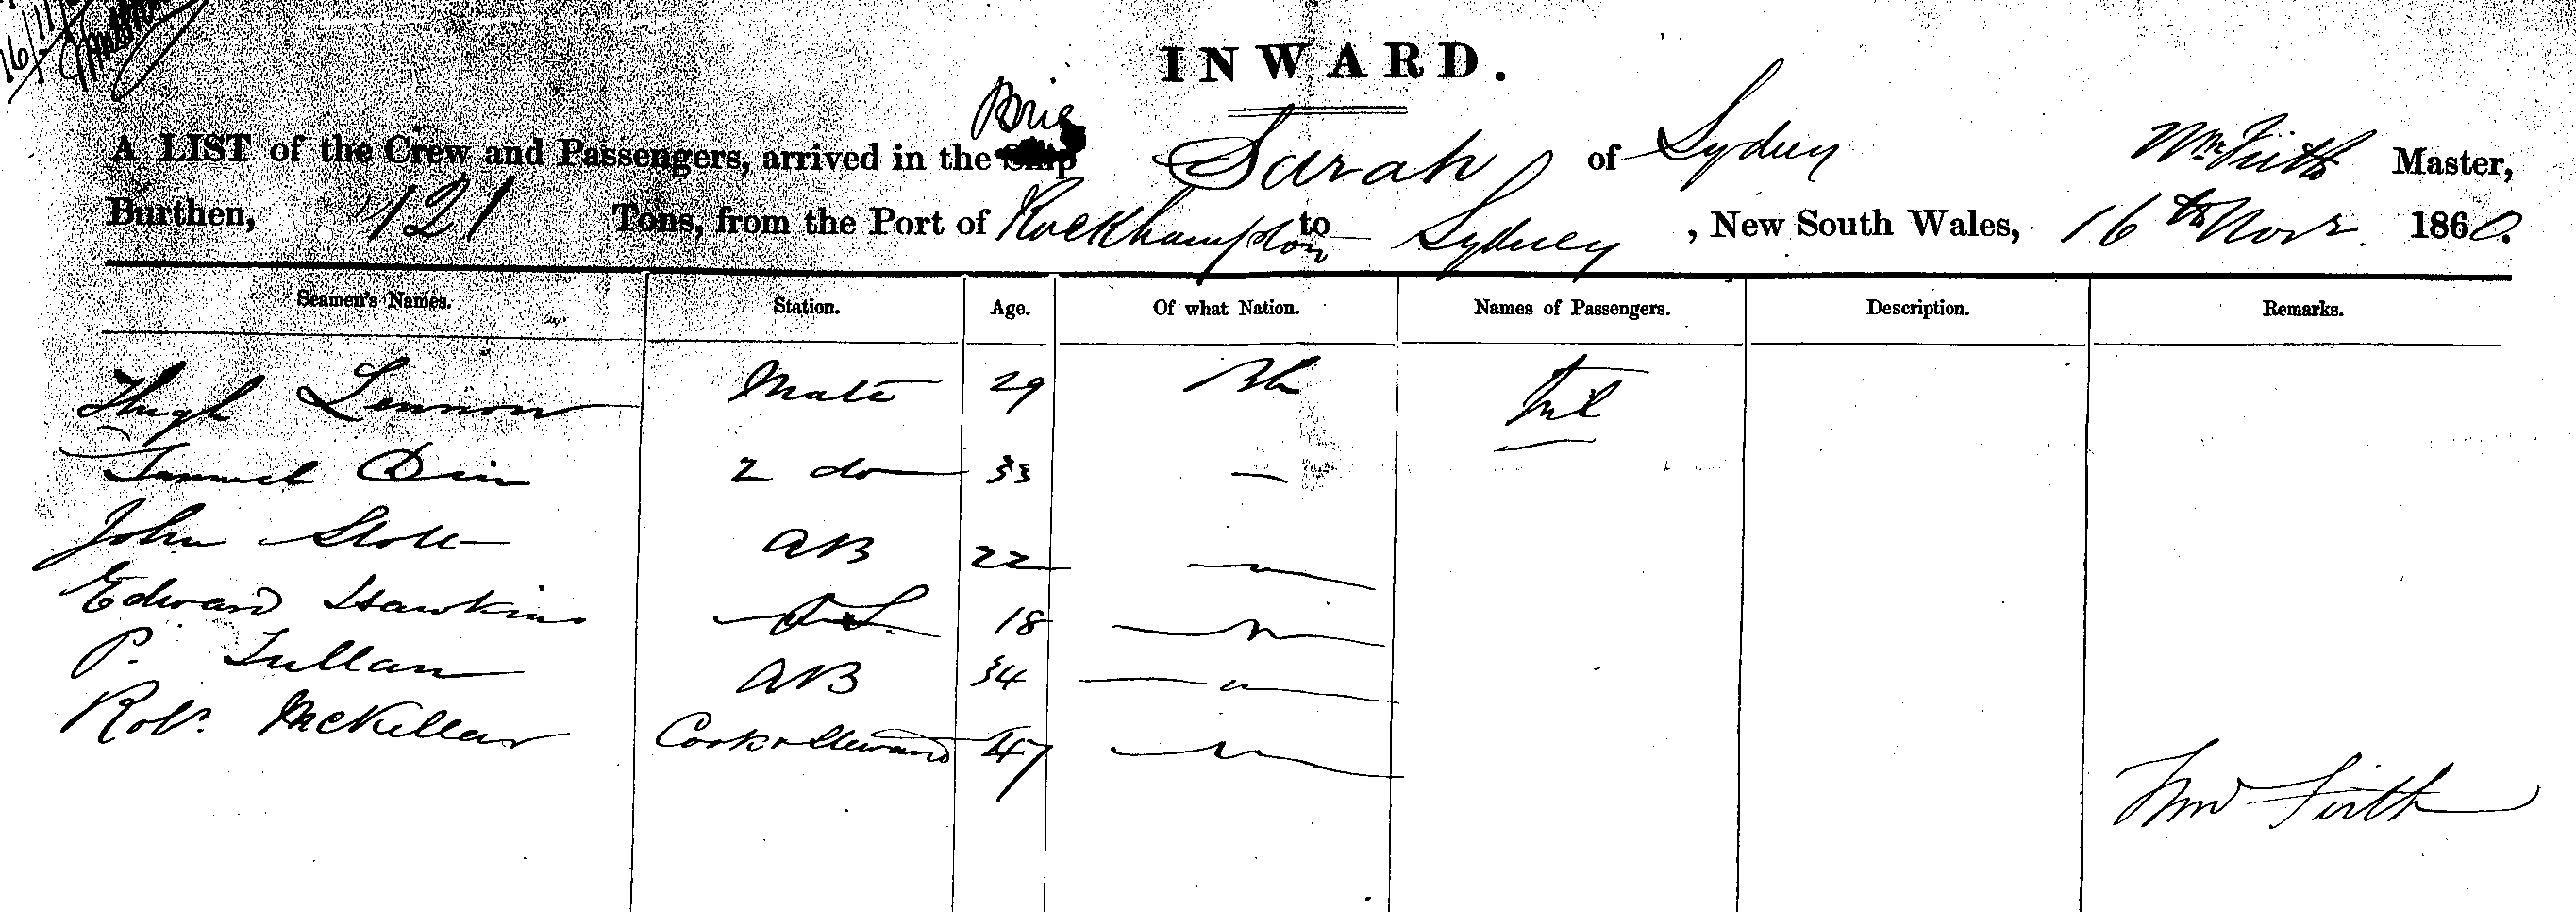 16/11/
INWARD.
Brig
A LIST of the Crew and Passengers, arrived in the Ship Sarah of Sydney Wm Firth Master,
Burthen, 121 Tons, from the Port of Rockhampton to Sydney, New South Wales, 16th Novr. 1860.
Seamen's Names. Station. Age. Of what Nation. Names of Passengers. Description. Remarks.
Hugh Lennon Mate 29 Nil
Samuel 2 do 33 —
John Stott AB 22 — " —
Edward Hawkins O.S. 18 — " —
P. Tullan AB 34 — " —
Robt. McKellar Cook & Steward 47 — " —
Wm Firth